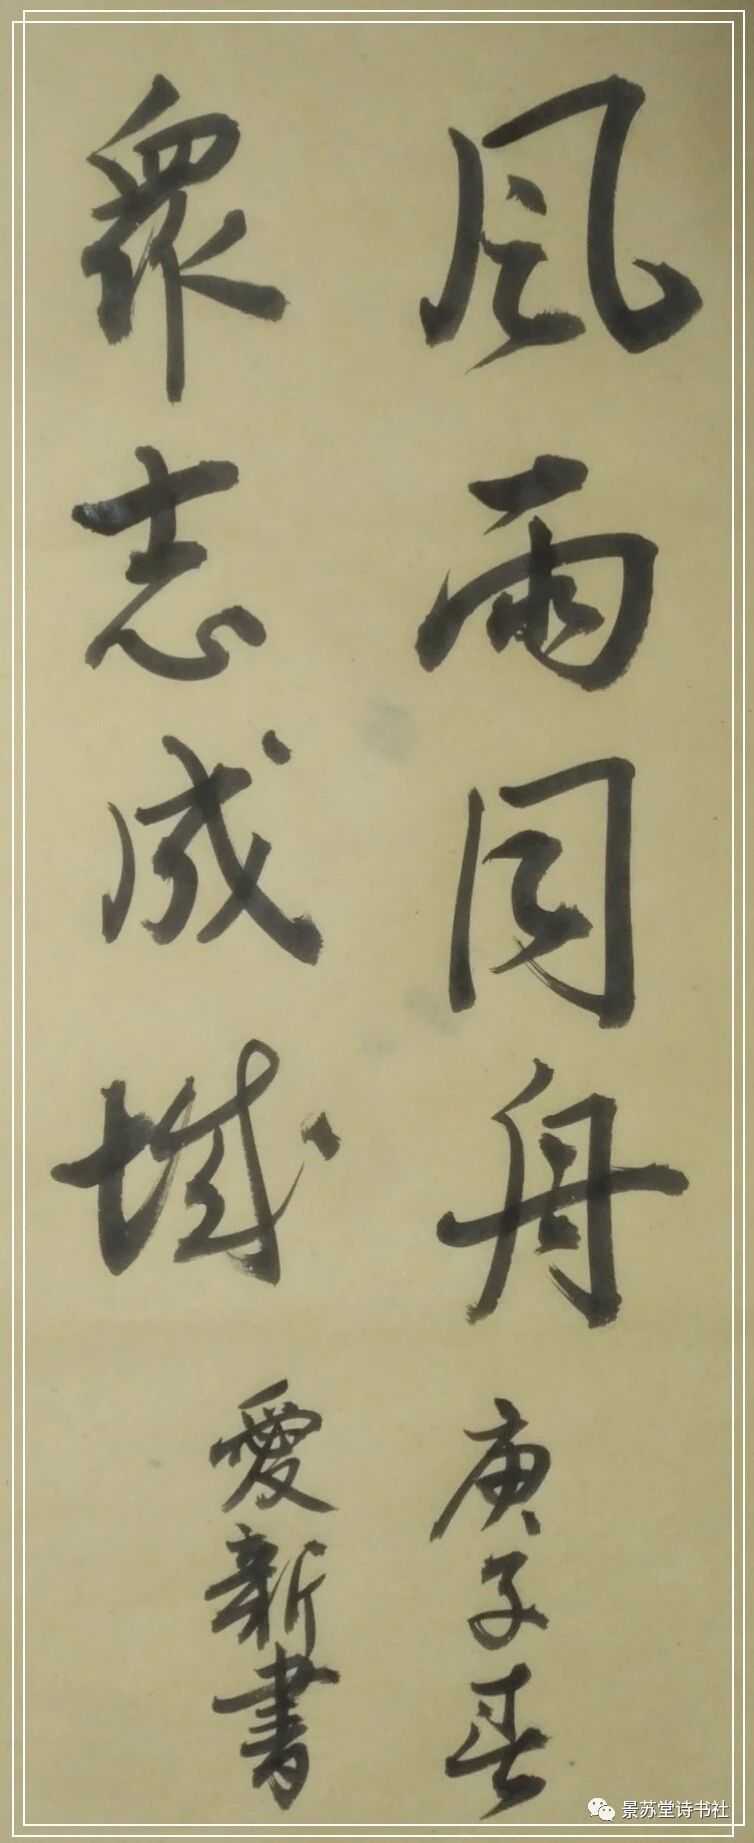 風雨同舟
庚子春
眾志成城
愛新書
景苏堂诗书社